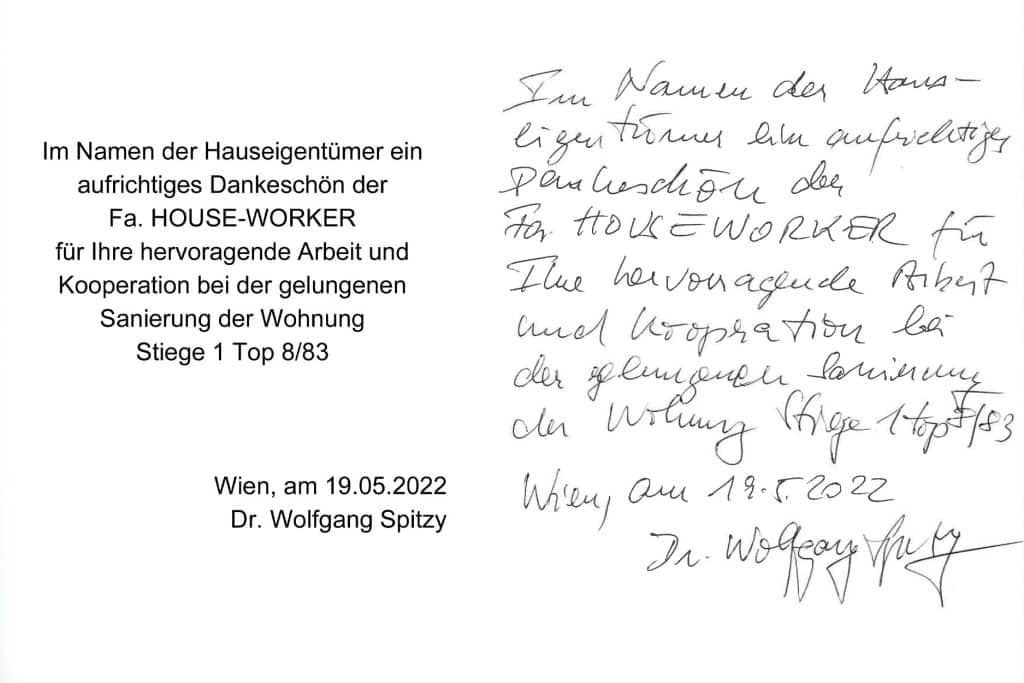 Im Namen der Hauseigentümer ein
aufrichtiges Dankeschön der
Fa. HOUSE-WORKER
für Ihre hervoragende Arbeit und
Kooperation bei der gelungenen
Sanierung der Wohnung
Stiege 1 Top 8/83
Wien, am 19.05.2022
Dr. Wolfgang Spitzy
Im Namen der Haus-
eigentümer ein aufrichtiges
Dankeschön der
Fa. HOUSEWORKER für
Ihre hervorragende Arbeit
und Kooperation bei
der gelungenen Sanierung
der Wohnung Stiege 1 top /83
Wien, am 19.5.2022
Dr. Wolfgang Spitzy